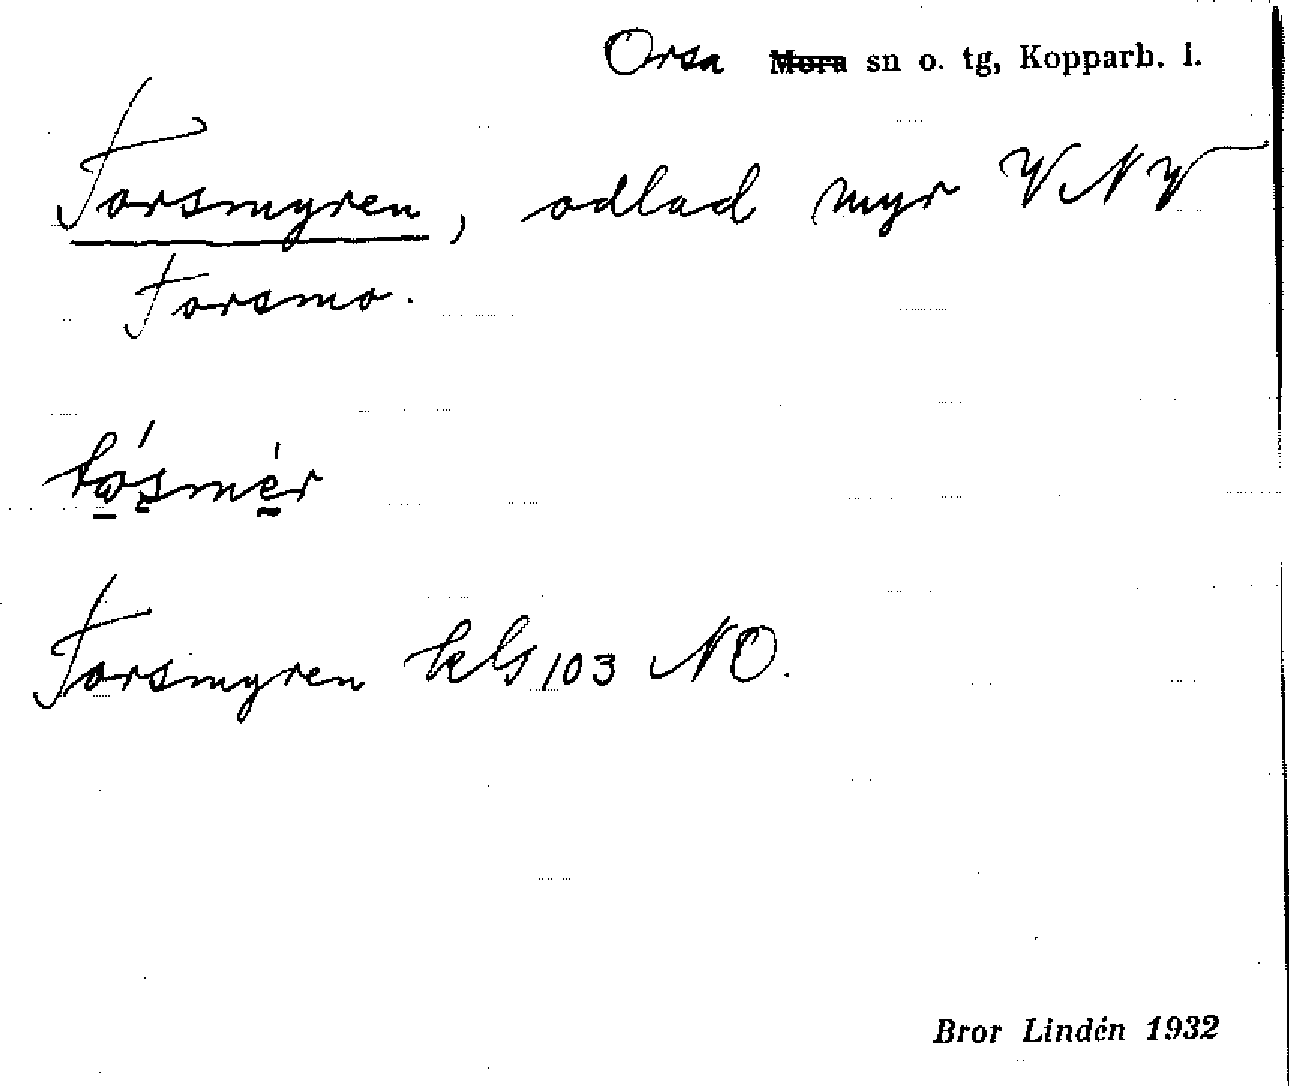 Orsa Mora sn o. tg, Kopparb. l.
Torsmyren, odlad myr VNV
Torsmo.
Torsmyren 103 NO.
Bror Lindén 1932